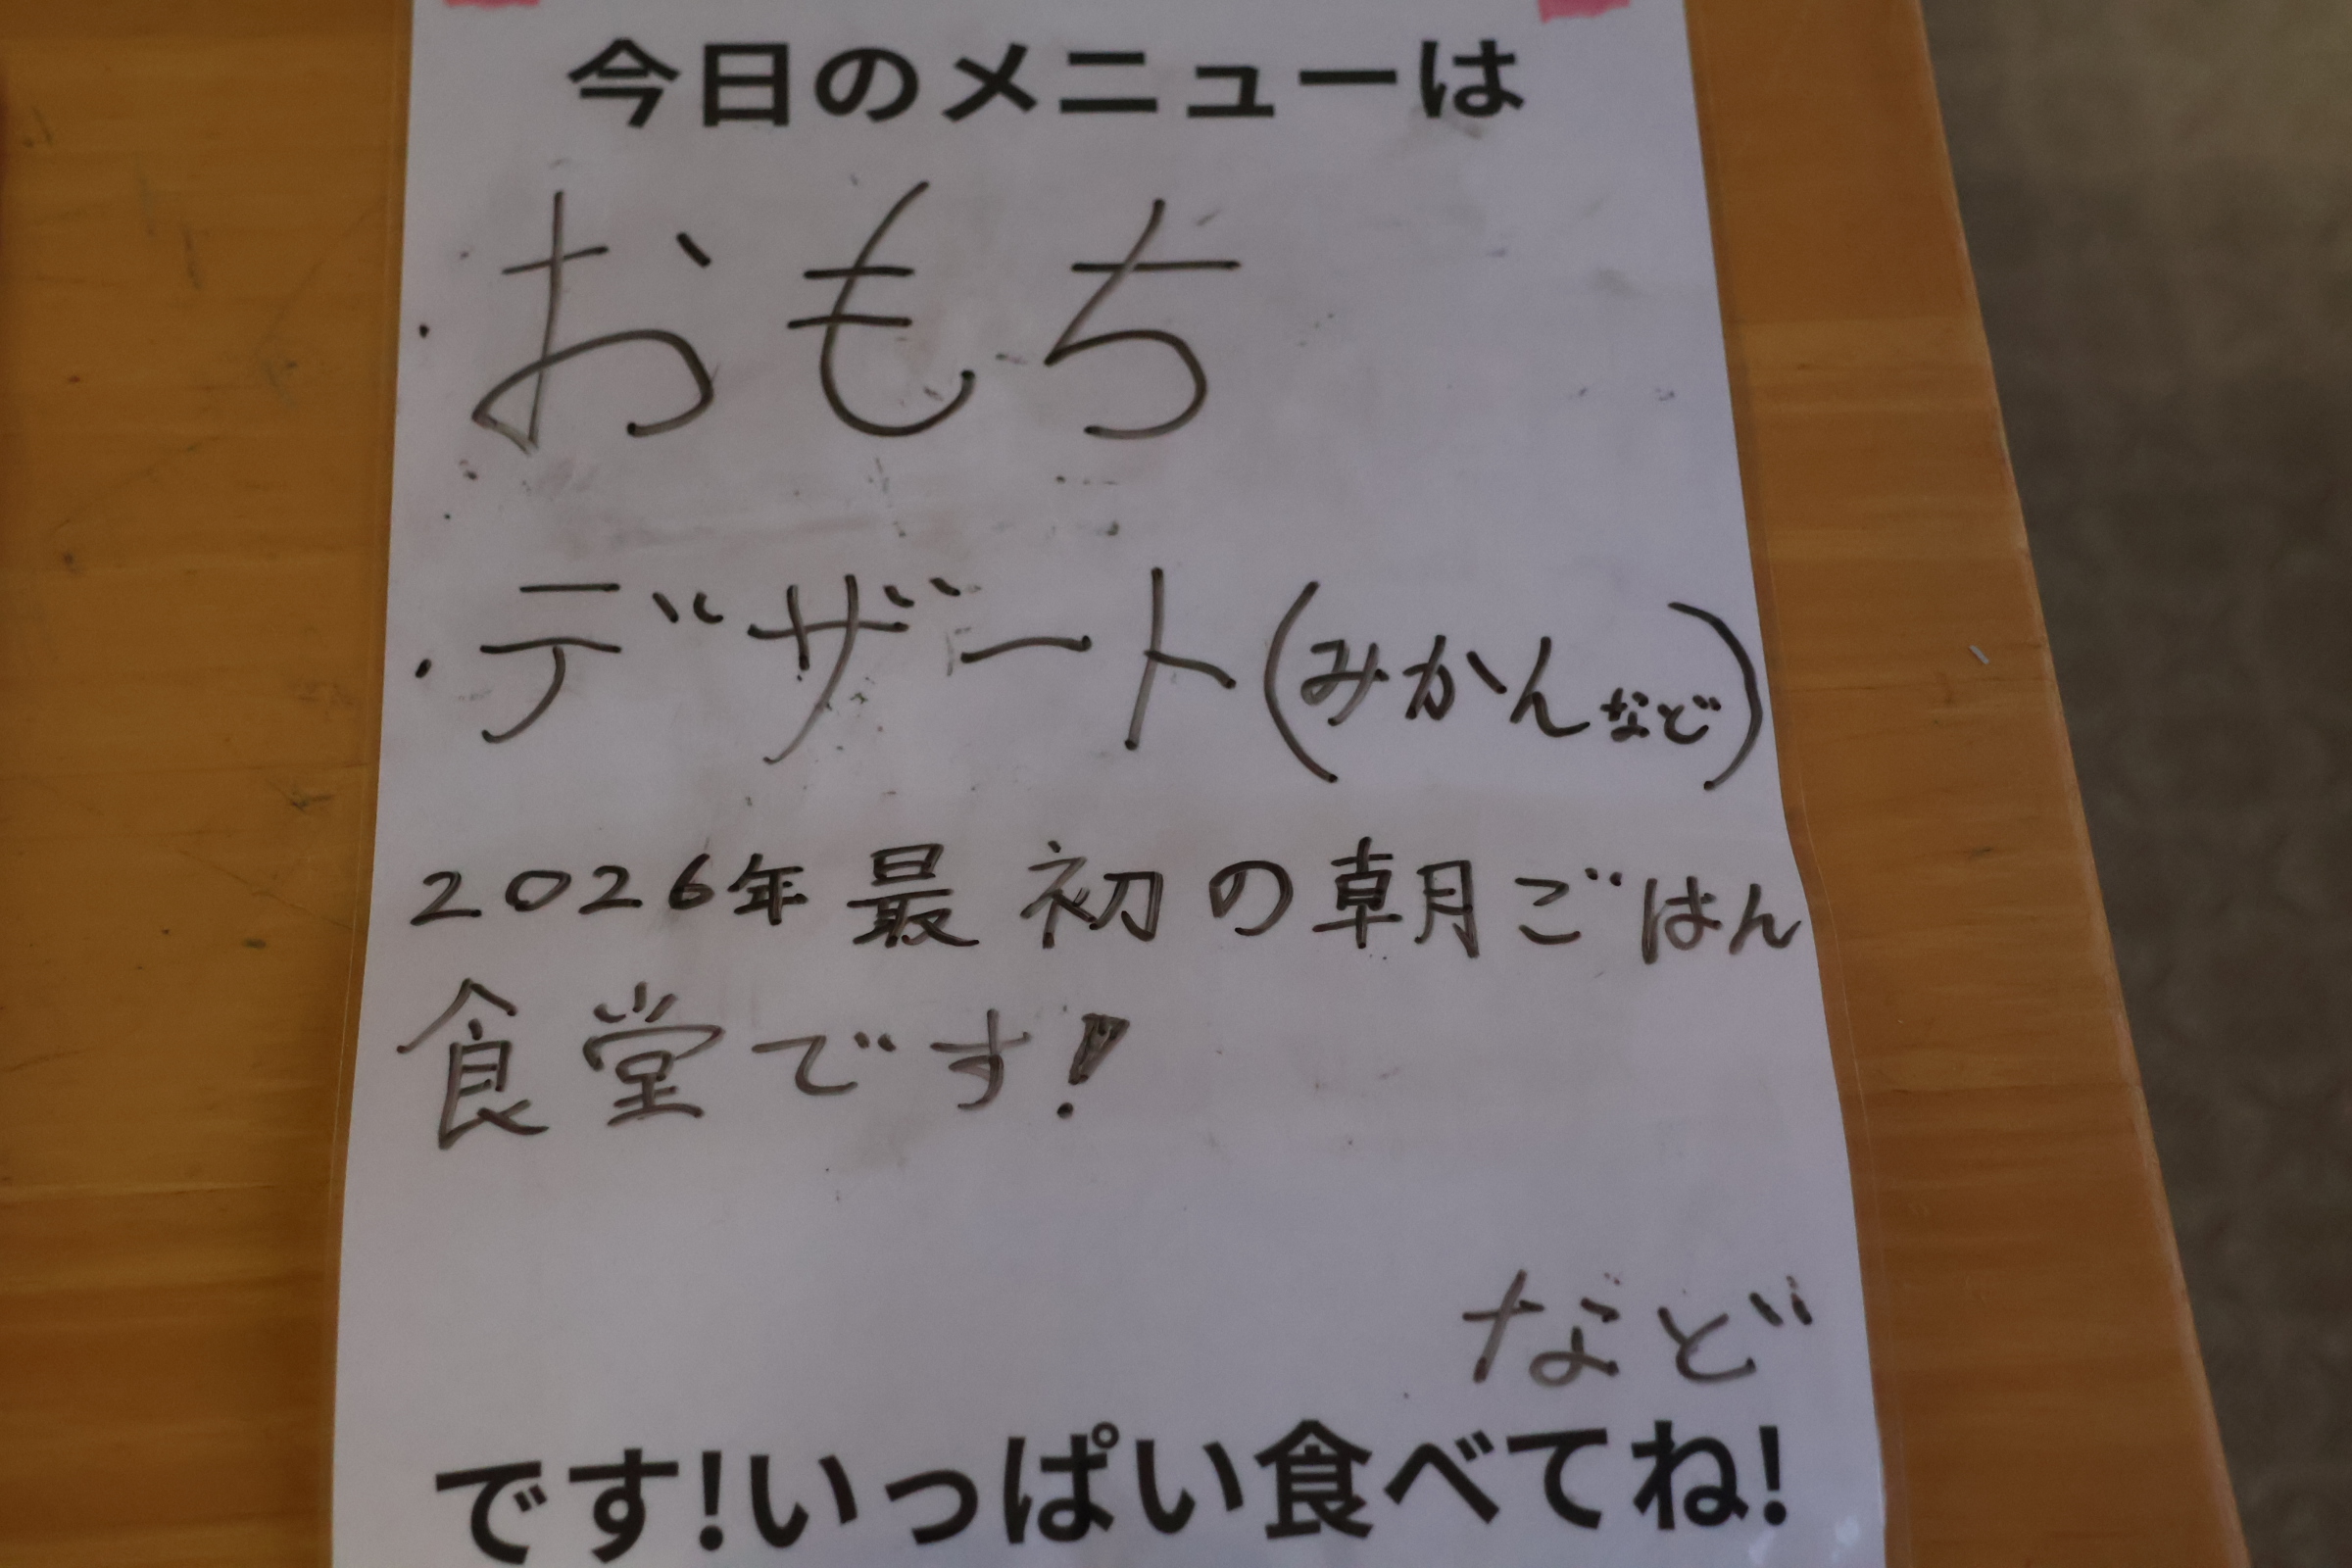 今日のメニューは
・おもち
・デザート(みかんなど)
2026年最初の朝ごはん
食堂です!
など
です!いっぱい食べてね!